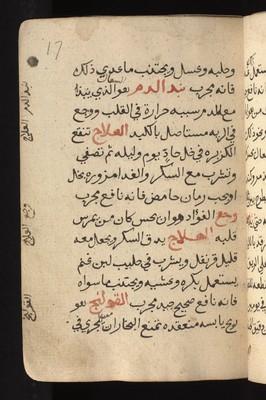 17
وحلبه وعسل ويجتنب ماعدي ذلك
فانه مجرب بند الدم هو الذي
مع الدم سببه حرارة في القلب ووجع
في الريه مستاصل بالكبد العلاج تنقع
الكزبره في خل حاذق يوم وليله ثم تصفي
وتشرب مع السكر والغدا مزوره بخل
اوحب رمان حامض فانه نافع مجرب
وجع الفواد هو ان يحس كان من يمرس
قلبه العلاج يدق السكر ويجعل معه
قليل قرنفل ويشرب في حليب لبن غنم
يستعمل بكره وعشيه ويجتنب ماسواه
فانه نافع صحيح جيد مجرب القولنج هو
يابسه منعقده تمنع البخار ان يجري في
بند الدم العلاج
وجع العلاج
القولنج